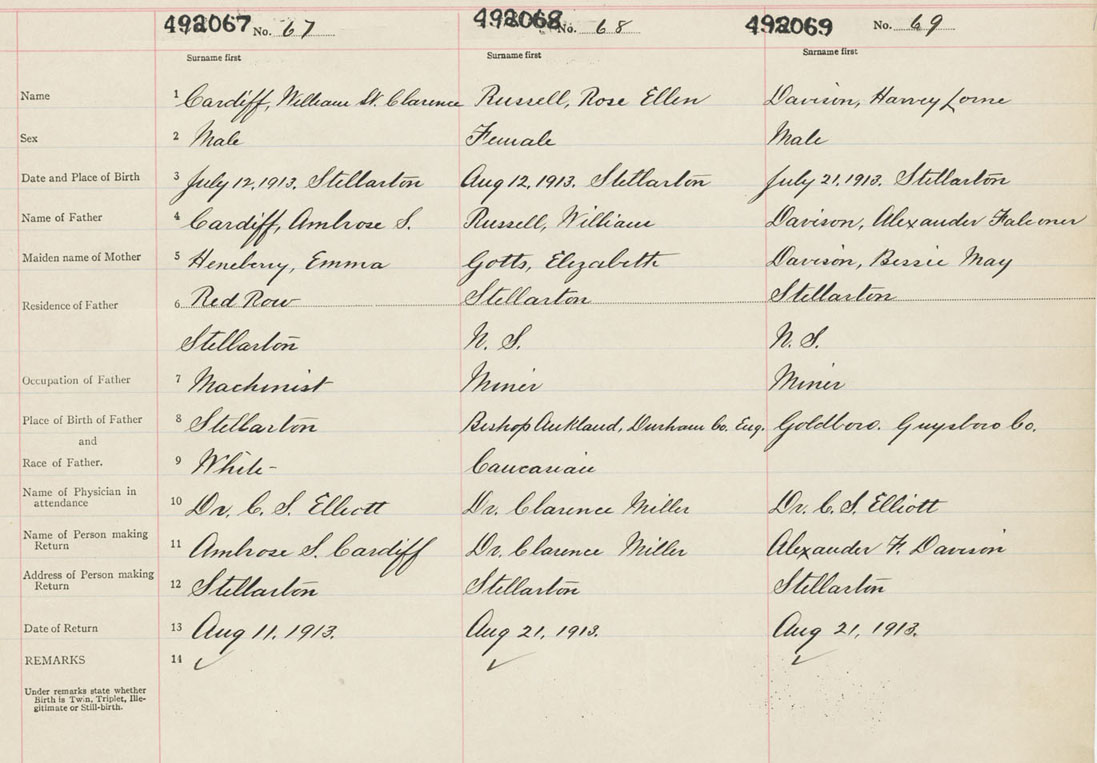 492067 No. 67 492068 No. 68 492069 No. 69
Surname first Surname first Surname first
Name 1 Cardiff, William St. Clarence Russell, Rose Ellen Davison, Harvey Lorne
Sex 2 Male Female Male
Date and Place of Birth 3 July 12, 1913. Stellarton Aug 12, 1913. Stellarton July 21, 1913. Stellarton
Name of Father 4 Cardiff, Ambrose S. Russell, William Davison, Alexander Falconer
Maiden name of Mother 5 Heneberry, Emma Gotts, Elizabeth Davison, Bessie May
Residence of Father 6 Red Row Stellarton Stellarton
Stellarton N. S. N. S.
Occupation of Father 7 Machinist Miner Miner
Place of Birth of Father 8 Stellarton Bishop Aukland, Durham Co. Eng. Goldboro. Guysboro Co.
and
Race of Father. 9 White - Caucasian
Name of Physician in
attendance 10 Dr. C. S. Elliott Dr. Clarence Miller Dr. C. S. Elliott
Name of Person making
Return 11 Ambrose S. Cardiff Dr. Clarence Miller Alexander F. Davison
Address of Person making
Return 12 Stellarton Stellarton Stellarton
Date of Return 13 Aug 11, 1913. Aug 21, 1913. Aug 21, 1913.
REMARKS 14 ✓ ✓ ✓
Under remarks state whether
Birth is Twin, Triplet, Ille-
gitimate or Still-birth.